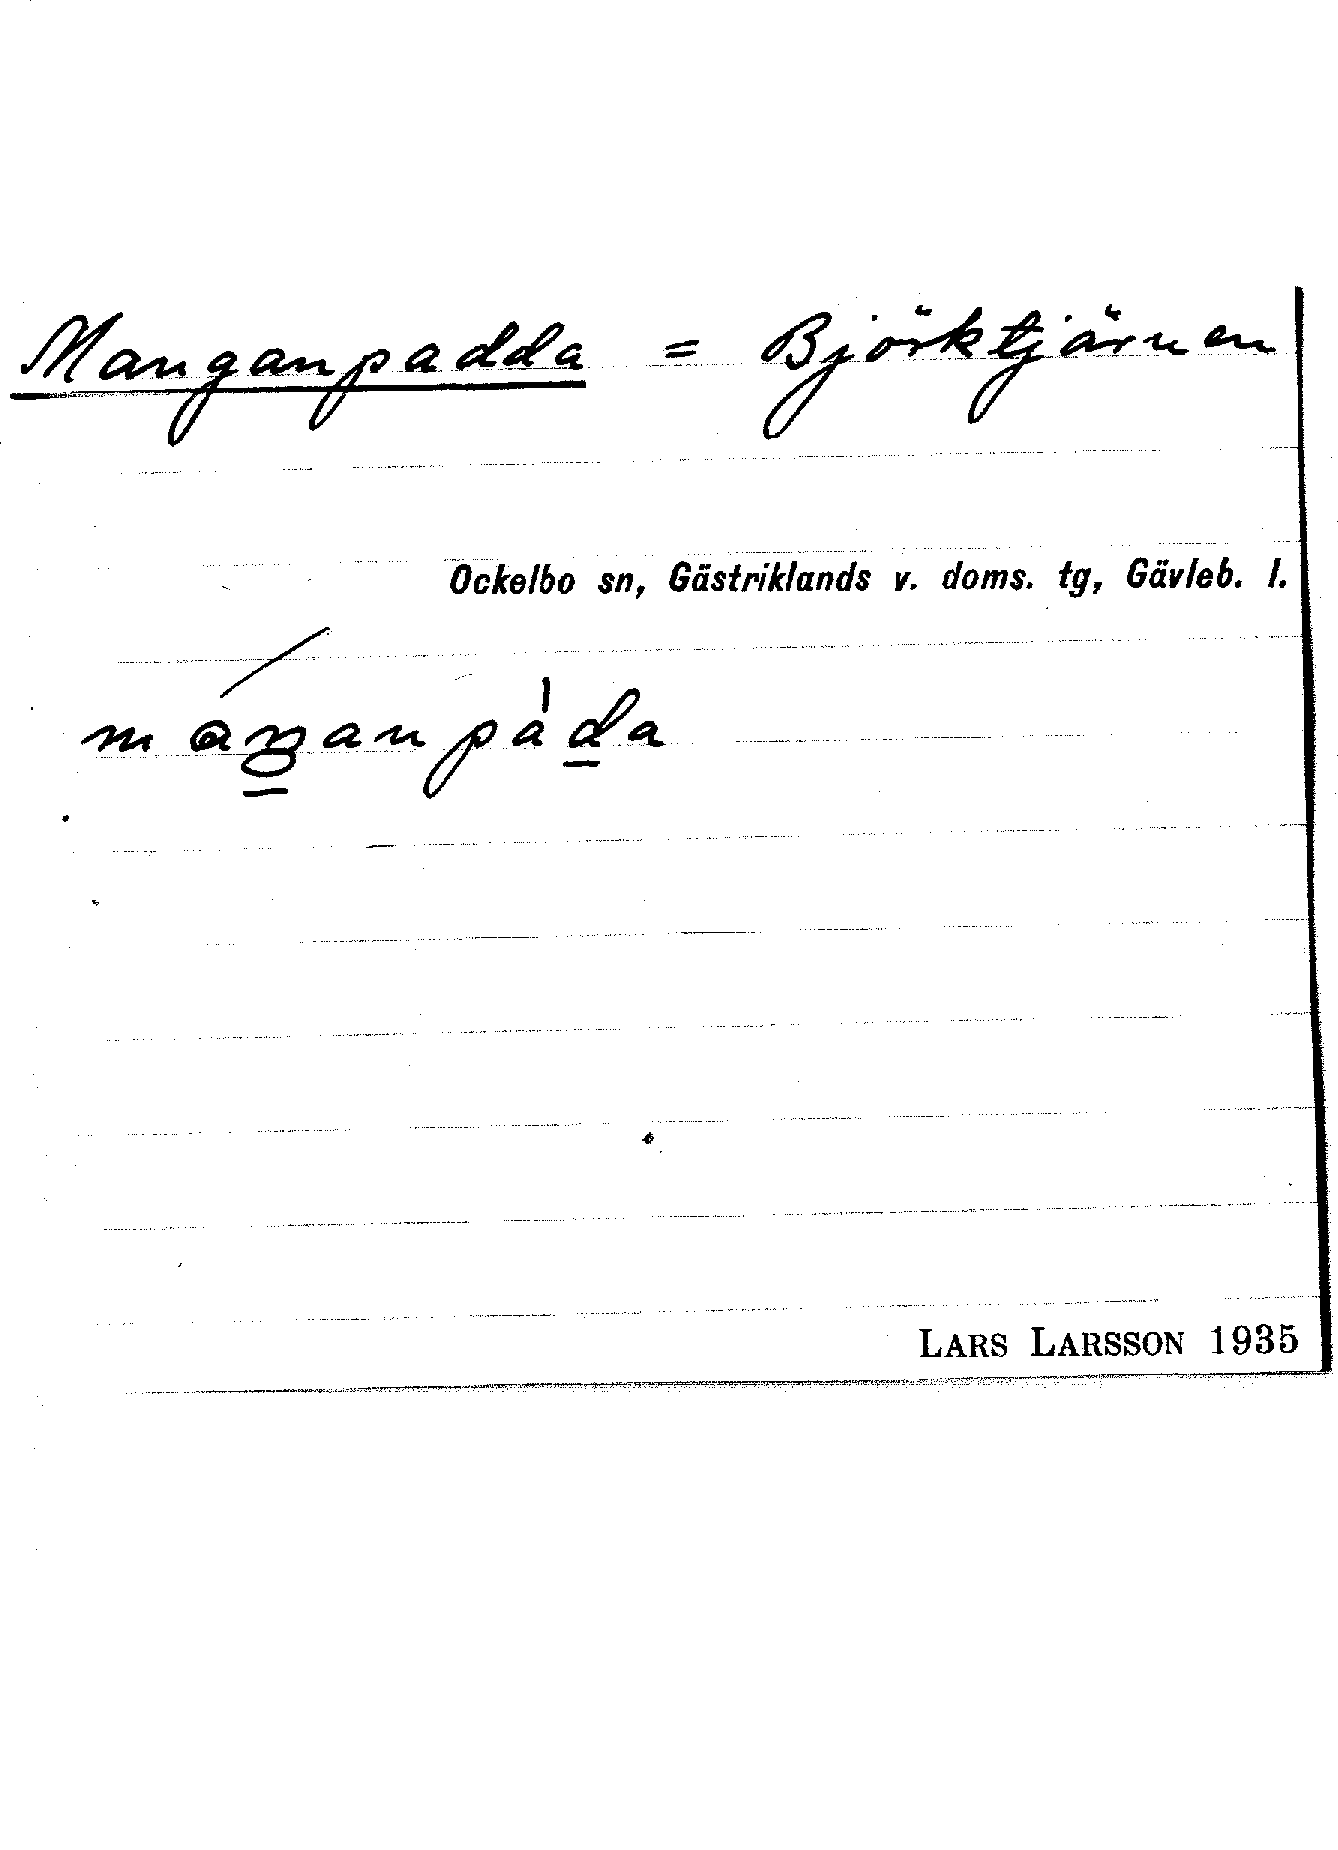 Manganpadda = Björktjärnen
Ockelbo sn, Gästriklands v. doms. tg, Gävleb. l.
maŋanpàda
LARS LARSSON 1935